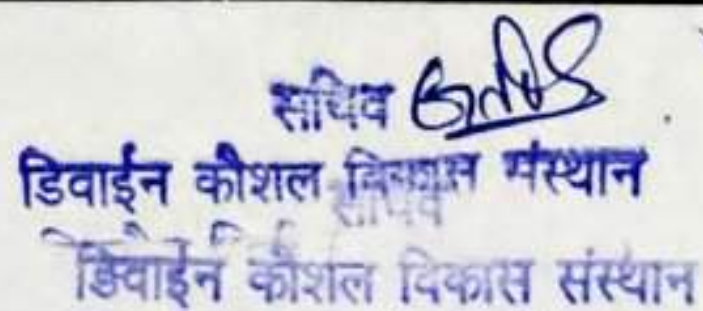 सचिव
डिवाईन कौशल विकास संस्थान
सचिव
डिवाईन कौशल विकास संस्थान